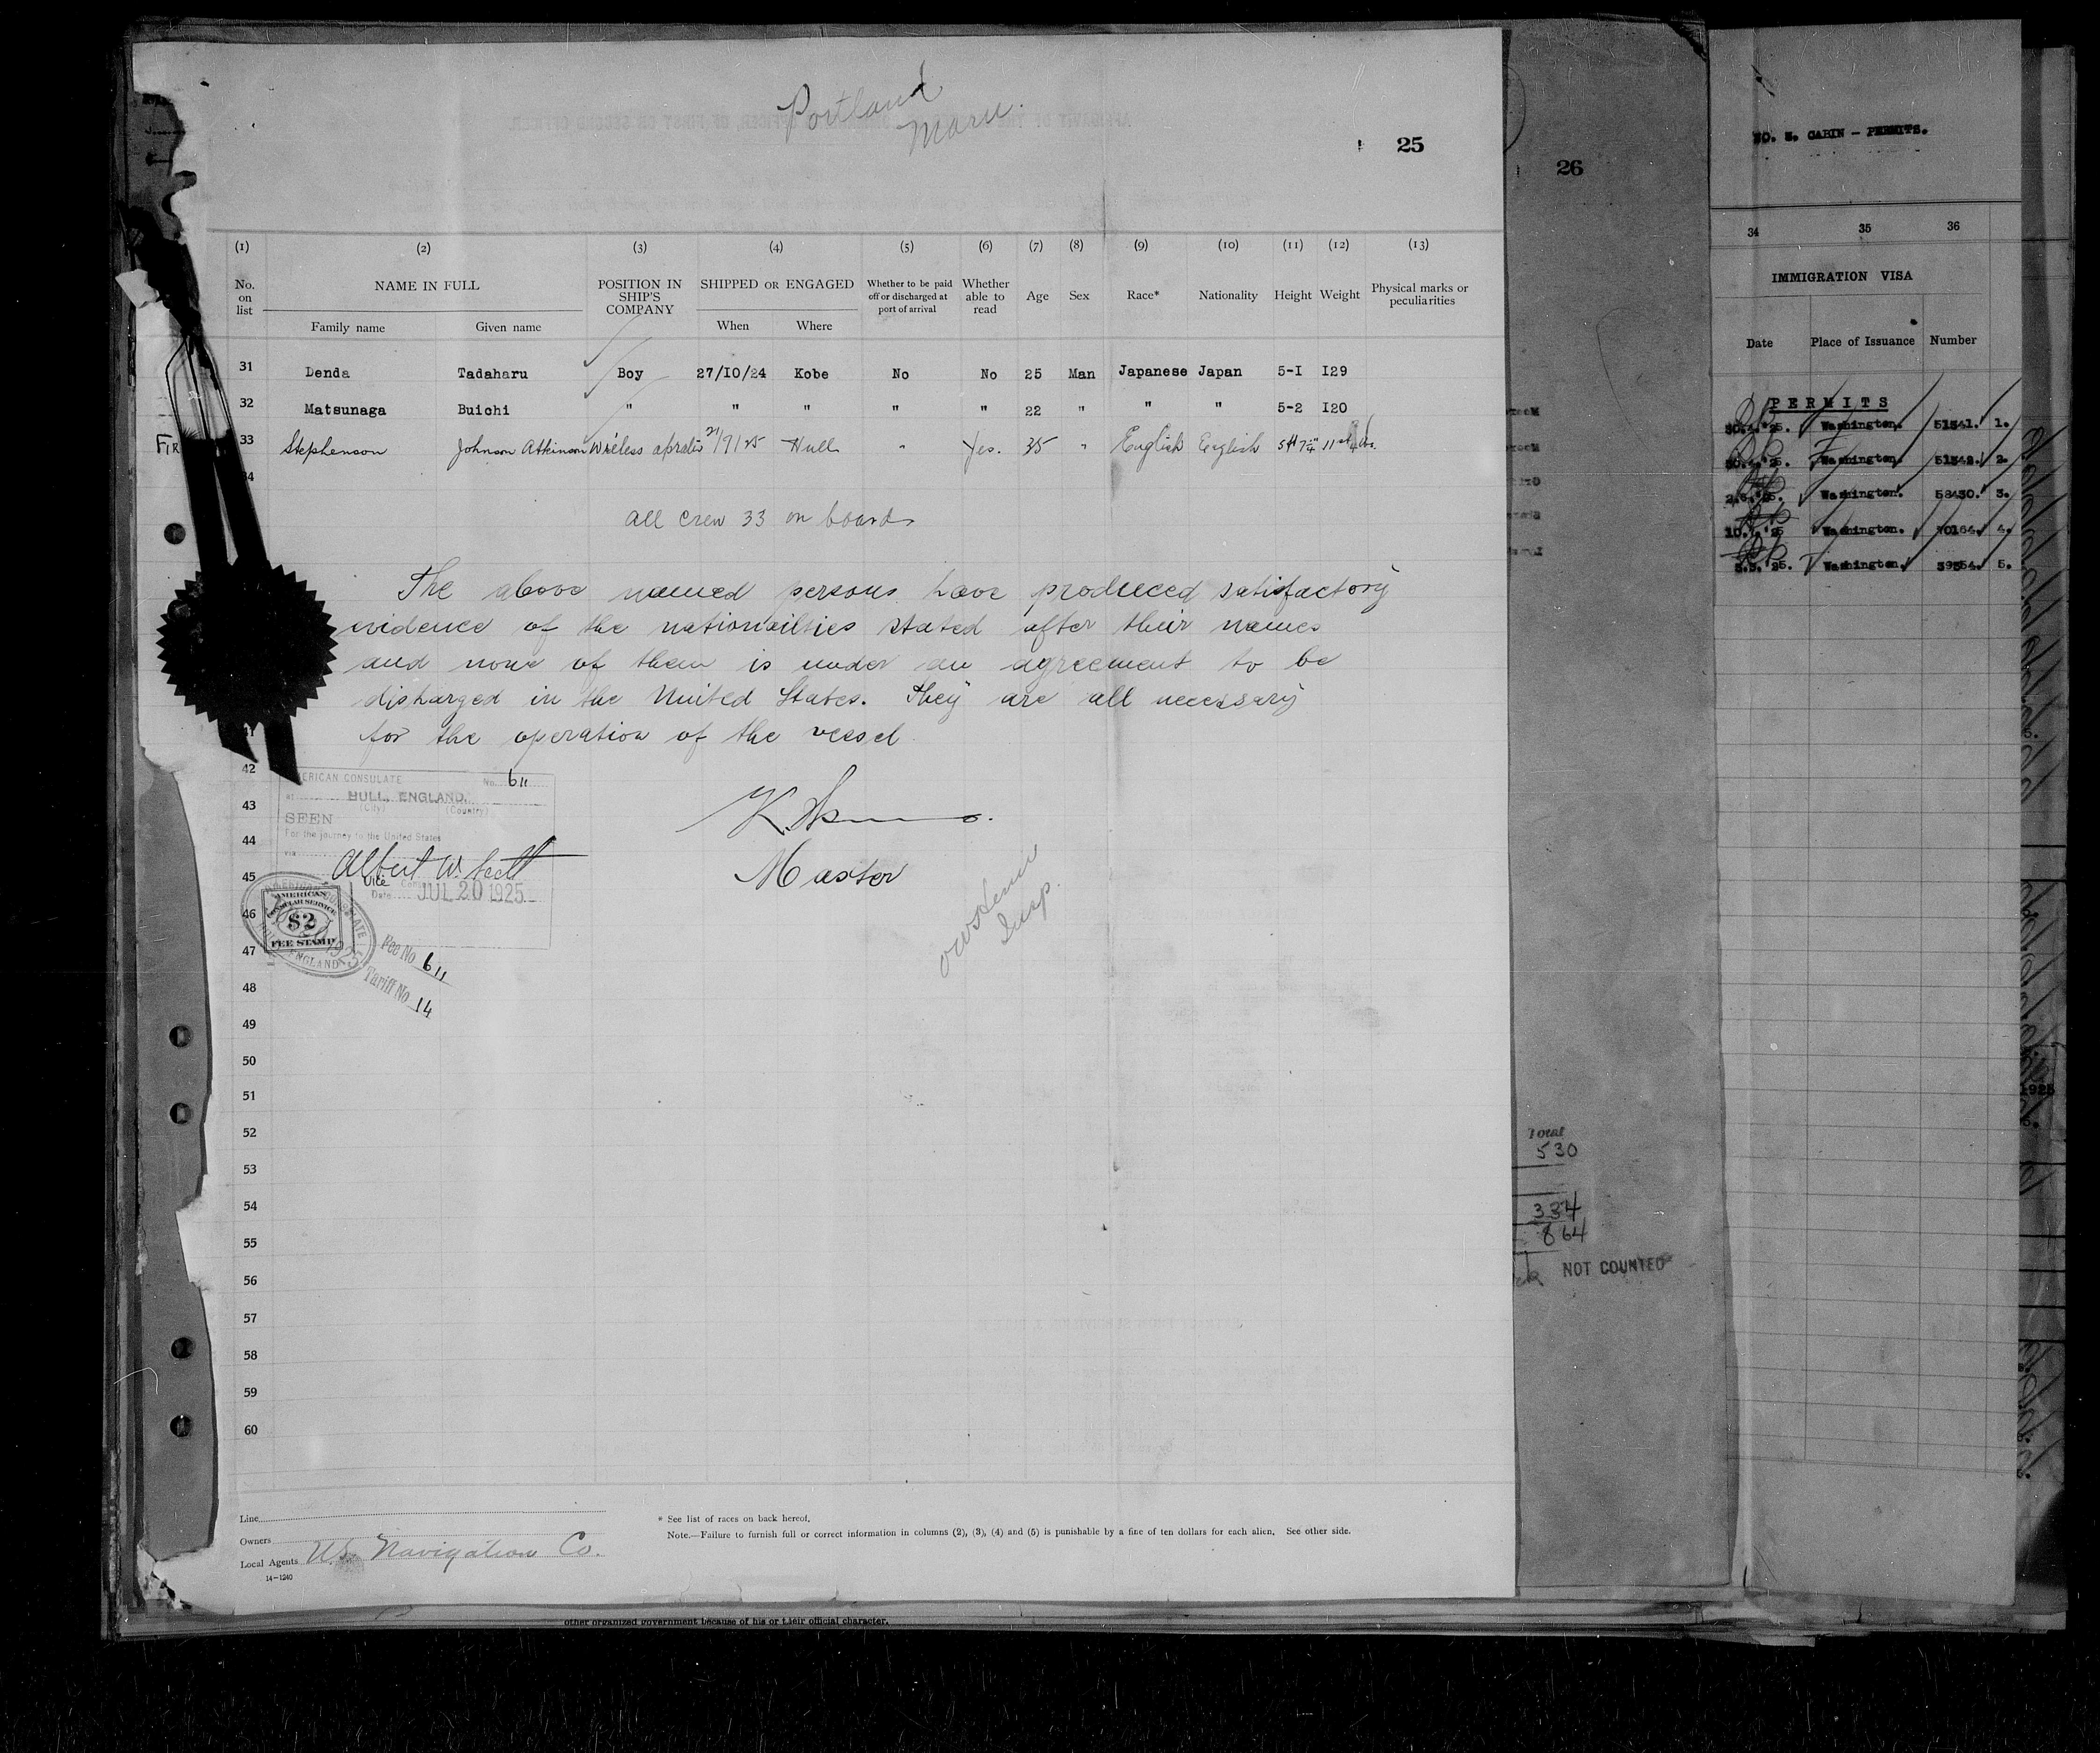 Portland
Maru.
25
(1) (2) (3) (4) (5) (6) (7) (8) (9) (10) (11) (12) (13)
No. on list NAME IN FULL POSITION IN SHIP'S COMPANY SHIPPED OR ENGAGED Whether to be paid off or discharged at port of arrival Whether able to read Age Sex Race* Nationality Height Weight Physical marks or peculiarities
Family name Given name When Where
31 Denda Tadaharu Boy 27/10/24 Kobe No No 25 Man Japanese Japan 5-1 129
32 Matsunaga Buichi " " " " " 22 " " " 5-2 120
33 Stephenson Johnson Atkinson Hull " Yes. 35 " English English
34
all crew 33 on board
The above named persons have produced satisfactory
evidence of the nationailties stated after their names
and none of them is under an agreement to be
disharged in the United States. They are all necessary
for the operation of the vessel
Master
AMERICAN CONSULATE No. 611
at HULL, ENGLAND.
(City) (Country)
SEEN
For the journey to the United States
via
Albert W. Scott
Vice
Date JUL 20 1925
AMERICAN
CONSULAR SERVICE
$2
FEE STAMP
ENGLAND
Fee No 611
Tariff No 14
Insp.
41
42
43
44
45
46
47
48
49
50
51
52
53
54
55
56
57
58
59
60
Line
Owners
Local Agents U.S. Navigation Co.
14-1240
* See list of races on back hereof.
Note.—Failure to furnish full or correct information in columns (2), (3), (4) and (5) is punishable by a fine of ten dollars for each alien. See other side.
other organized government because of his or their official character.
26
Total
530
334
864
NOT COUNTED
CABIN - PERMITS.
34 35 36
IMMIGRATION VISA
Date Place of Issuance Number
PERMITS
Washington. 51541. 1.
Washington. 51542. 2.
Washington. 58430. 3.
Washington. 70164. 4.
Washington. 39554. 5.
1925